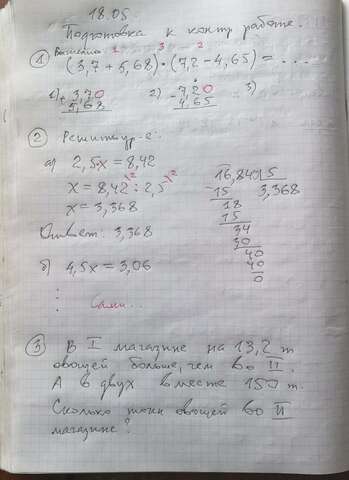 18.05
Подготовка к контр. работе.
① Вычислить 1 3 2
(3,7 + 5,68) · (7,2 - 4,65) = ...
1) + 3,70 2) - 7,20 3)
5,68 4,65
② Решить ур-е:
а) 2,5x = 8,42
x = 8,42 : 2,5
x = 3,368
Ответ: 3,368
16,84 | 5
15 3,368
18
15
34
30
40
40
0
б) 4,5x = 3,06
Сами...
③ В I магазине на 13,2 т
овощей больше, чем во II.
А в двух вместе 150 т.
Сколько тонн овощей во II
магазине?